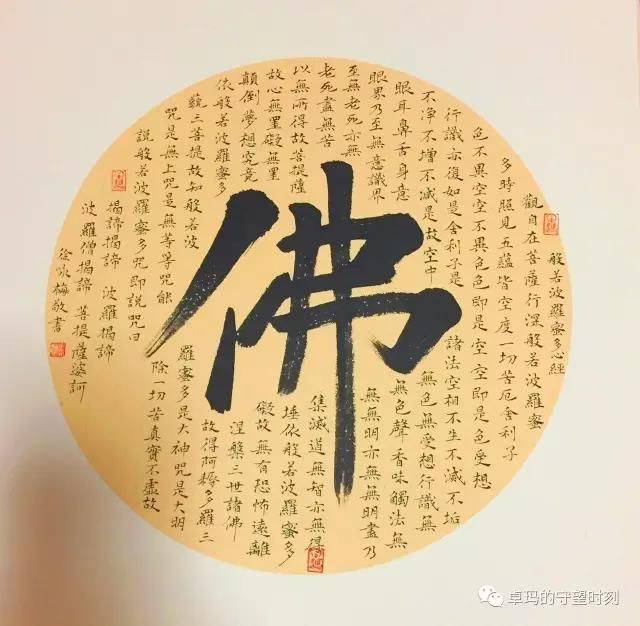 般若波羅蜜多心經
觀自在菩薩行深般若波羅蜜
多時照見五蘊皆空度一切苦厄舍利子
色不異空空不異色色即是空空即是色受想
行識亦復如是舍利子是諸法空相不生不滅不垢
不淨不增不減是故空中無色無受想行識無
眼耳鼻舌身意無色聲香味觸法無
眼界乃至無意識界無無明亦無無明盡乃
至無老死亦無
老死盡無苦集滅道無智亦無得
以無所得故菩提薩埵依般若波羅蜜多
故心無罣礙無罣礙故無有恐怖遠離
顛倒夢想究竟涅槃三世諸佛
依般若波羅蜜多故得阿耨多羅三
藐三菩提故知般若波羅蜜多是大神咒是大明
咒是無上咒是無等等咒能除一切苦真實不虛故
說般若波羅蜜多咒即說咒曰
揭諦揭諦 波羅揭諦
波羅僧揭諦 菩提薩婆訶
徐咏梅敬書
佛
卓玛的守望时刻